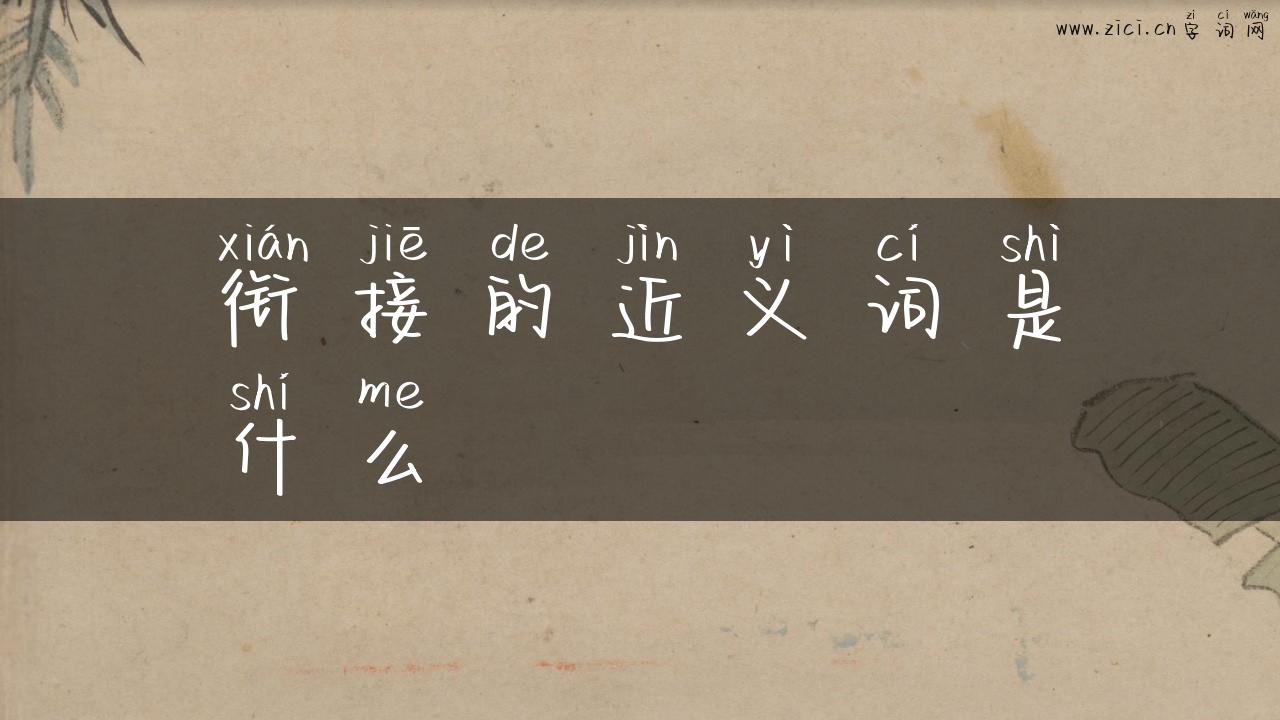 zì cí wǎng
www.zici.cn 字词网
xián jiē de jìn yì cí shì
衔接的近义词是
shí me
什么